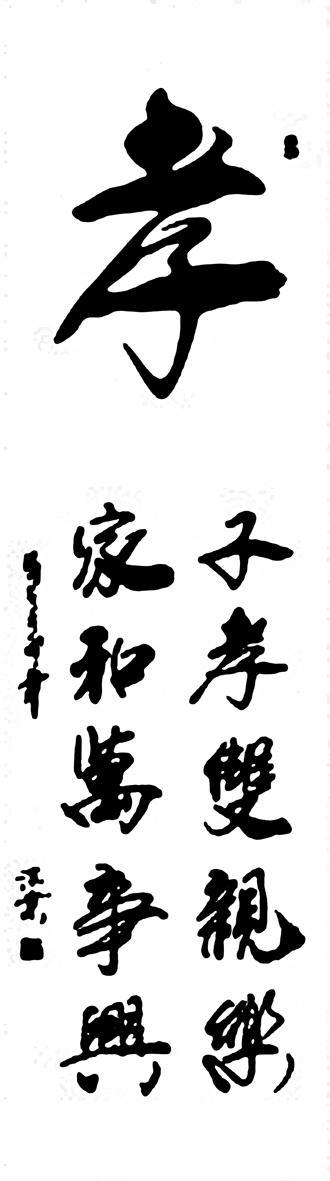 孝
子孝雙親樂
家和萬事興